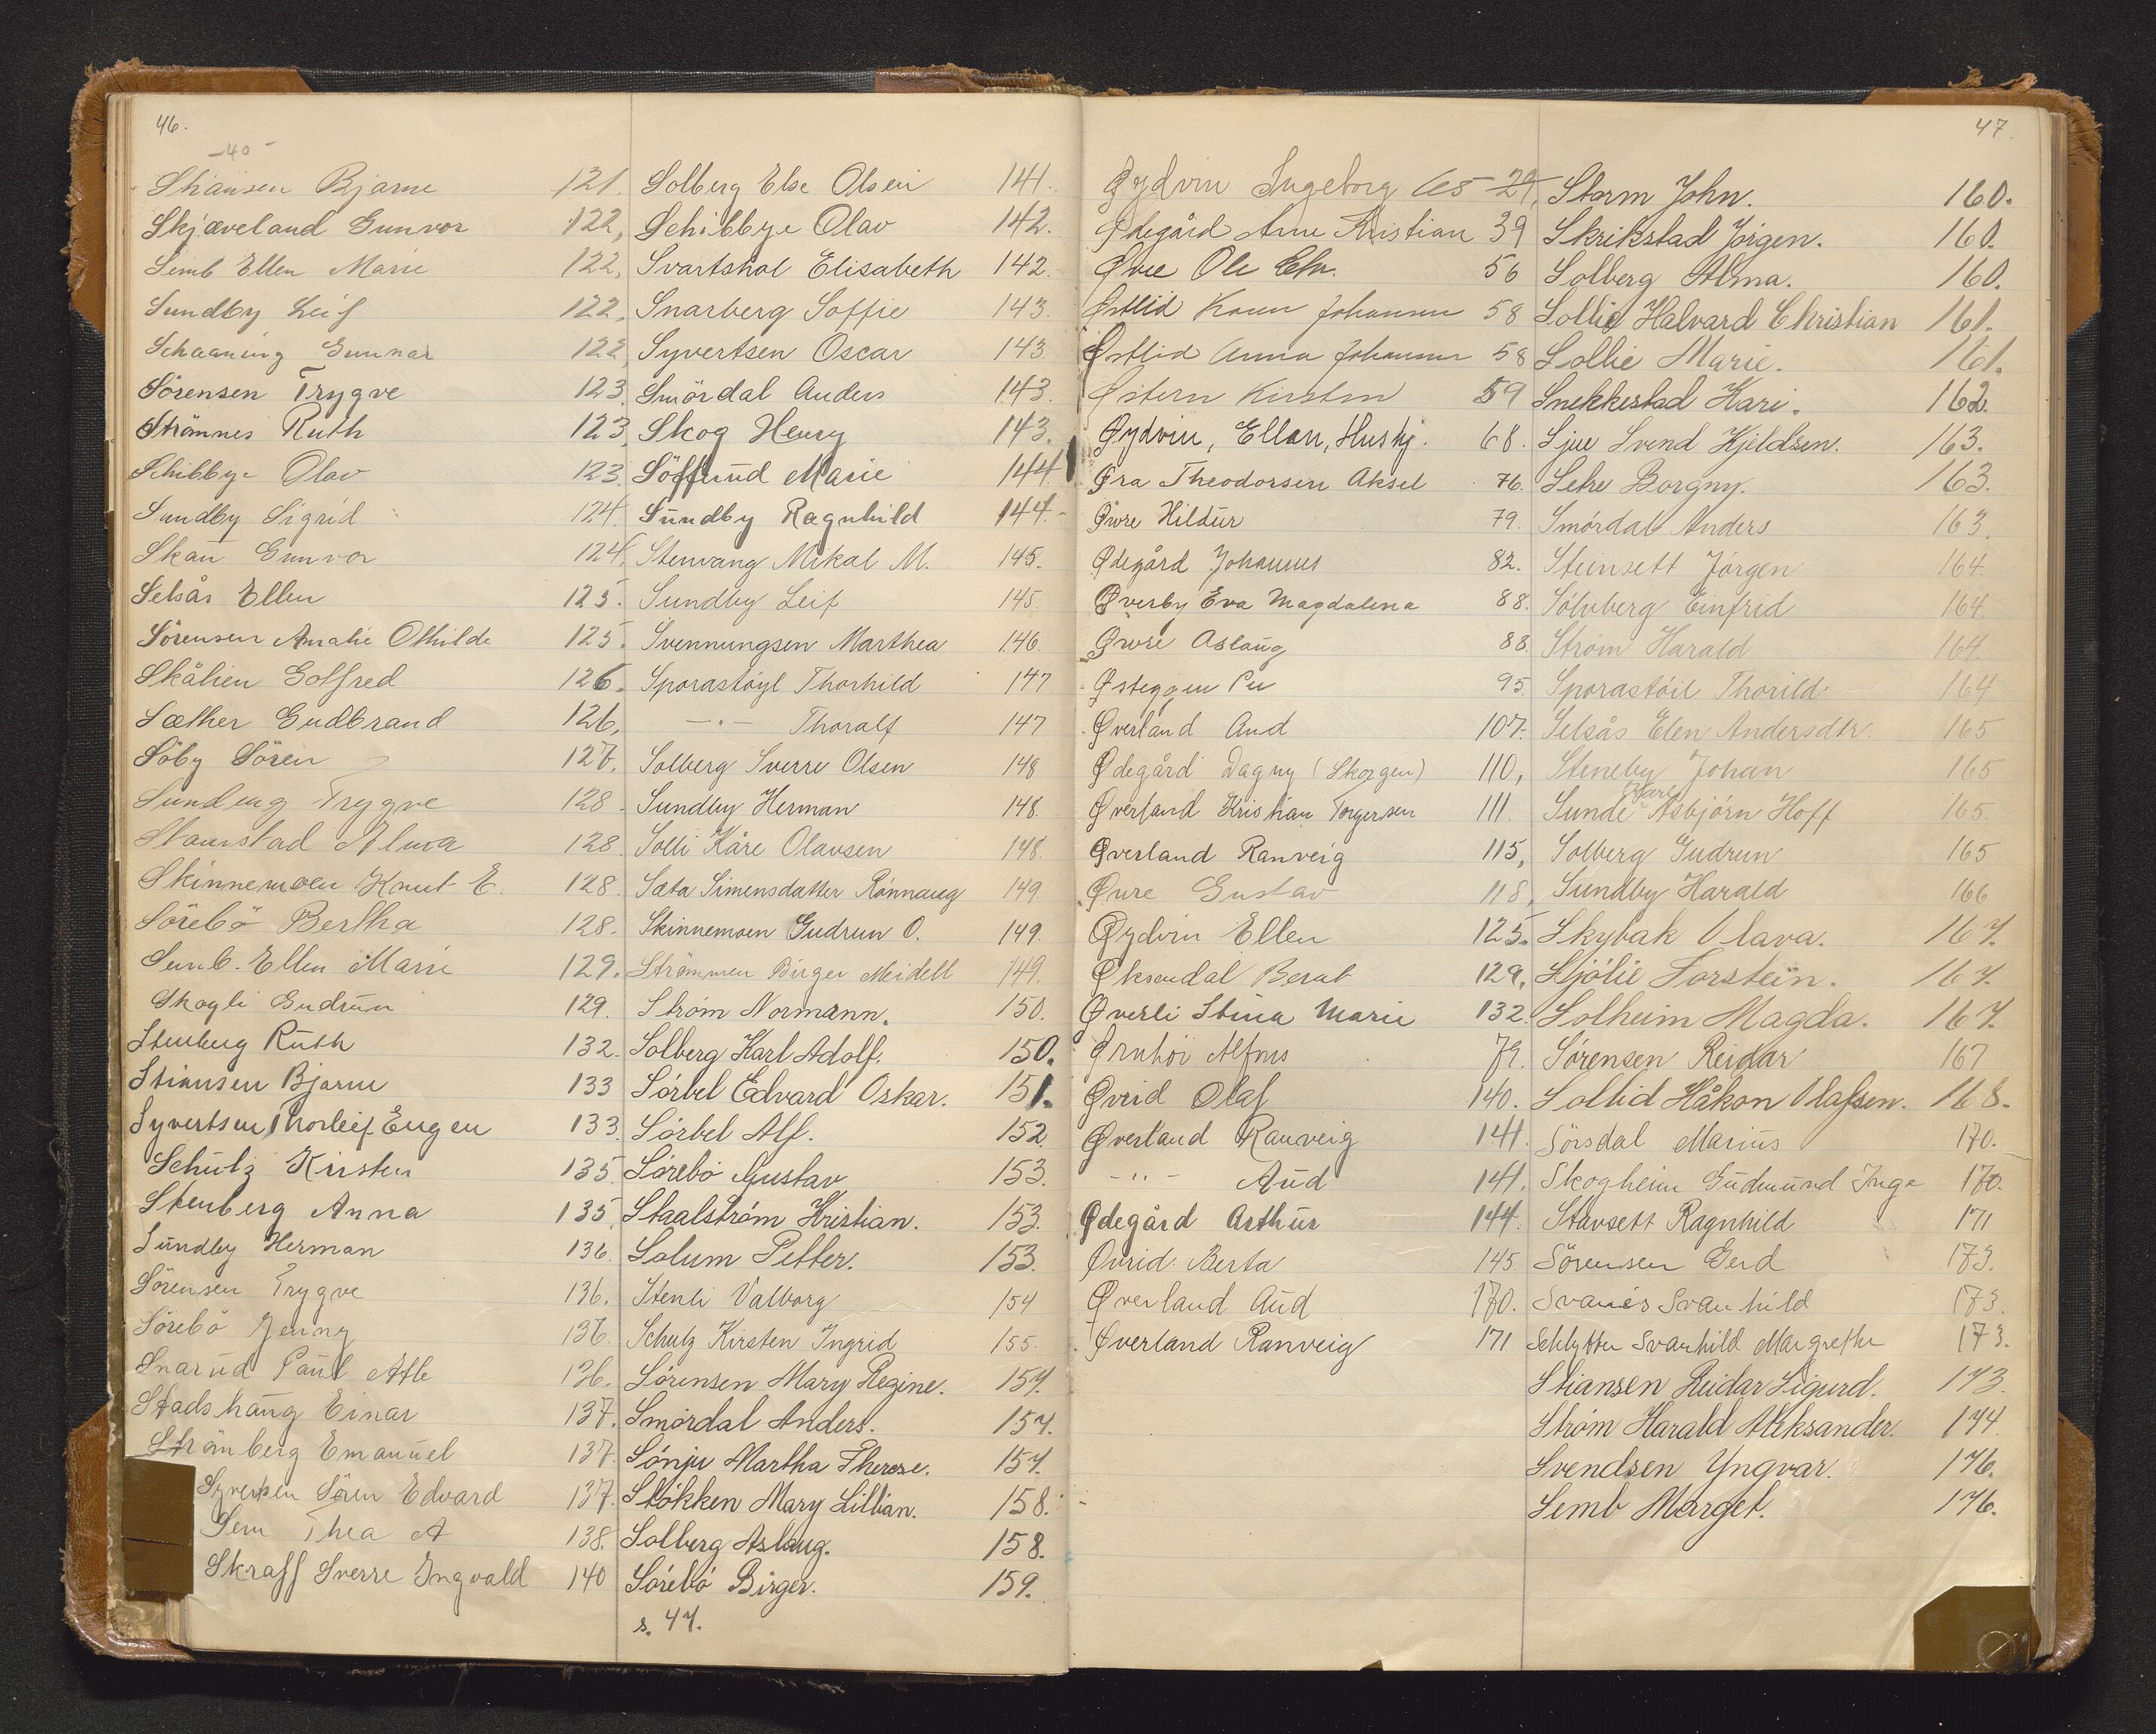 46.
-40-
Stiansen Bjarne 121.
Skjæveland Gunvor 122,
Semb Ellen Marie 122,
Sundby Leif 122,
Schaaning Gunnar 122,
Sörensen Trygve 123.
Strömnes Ruth 123
Schibbye Olav 123.
Sundby Sigrid 124.
Skau Gunvor 124,
Selsås Ellen 125.
Sörensen Amalie Othilde 125.
Skålien Golfred 126.
Sæther Gudbrand 126,
Söby Sören 127.
Sundeng Trygve 128
Stamstad Alma 128.
Skinnemoen Knut E. 128.
Sörebö Bertha 128.
Semb. Ellen Marie 129.
Skogli Gudrun 129.
Stenberg Ruth 132.
Stiansen Bjarne 133
Syvertsen Thorleif Eugen 133.
Schulz Kirsten 135
Stenberg Anna 135
Sundby Herman 136.
Sörensen Trygve 136.
Sörebö Jenny 136.
Snarud Paul Atle 136.
Stadshaug Einar 137.
Strömberg Emanuel 137.
Syvertsen Sören Edvard 137.
Sem Thea A 138.
Skraff Sverre Ingvald 140
Solberg Else Olsen 141.
Schibbye Olav 142.
Svartshol Elisabeth 142.
Snarberg Soffie 143.
Syvertsen Oscar 143.
Smördal Anders 143.
Skog Henry 143.
Söflund Marie 144
Sundby Ragnhild 144.
Stenvang Mikal M. 145.
Sundby Leif 145.
Svennungsen Marthea 146.
Sporastøyl Thorhild 147
-"- Thoralf 147
Solberg Sverre Olsen 148
Sundby Herman 148.
Solli Kåre Olavsen 148.
Sæta Simensdatter Rønnaug 149
Skinnemoen Gudrun O. 149.
Strömmen Birger Meidell 149.
Strøm Normann. 150.
Solberg Karl Adolf. 150.
Sørbel Edvard Oskar. 151.
Sørbel Alf. 152.
Sørebø Gustav 153.
Staalstrøm Kristian. 153.
Solum Petter. 153.
Stenli Valborg 154
Schulz Kirsten Ingrid 155.
Sørensen Mary Regine. 157.
Smørdal Anders. 157.
Sønju Martha Therese. 157.
Støkken Mary Lillian. 158.
Solberg Aslaug. 158.
Sørebø Birger. 159.
s. 47.
47.
Øydvin Ingeborg 65-29,
Ødegård Arne Kristian 39
Øvre Ole Chr. 56
Østlid Karen Johansen 58
Østlid Anna Johansen 58
Østern Kirsten 59
Øydvin, Ellen, Huskj. 68.
Øra Theodorsen Aksel 76.
Øvre Hildur 79.
Ødegård Johannes 82.
Øverby Eva Magdalena 88.
Øvre Aslaug 88.
Østeggen Per 95.
Øverland Aud 107.
Ødegård Dagny (Skorgen) 110,
Øverland Kristian Torgersen 111.
Øverland Ranveig 115,
Øvre Gustav 118,
Øydvin Ellen 125.
Øksendal Bernt 129,
Øverli Stina Marie 132.
Ørnhöi Alfons 79.
Øvrid Olaf 140.
Øverland Ranveig 141.
-"- Aud 141.
Ødegård Arthur 144.
Øvrid. Berta 145
Øverland Aud 170.
Øverland Ranveig 171
Storm John. 160.
Skrikstad Jørgen. 160.
Solberg Alma. 160.
Sollie Halvard Christian 161.
Sollie Marie. 161.
Snekkestad Kari. 162.
Sjue Svend Kjeldsen. 163.
Sehe Borgny. 163.
Smørdal Anders 163.
Steinsett Jørgen 164.
Sølvberg Einfrid 164.
Strøm Harald 164.
Sporastøil Thorild. 164
Selsås Elen Andersdtr. 165
Steneby Johan 165
Kåre
Sunde Asbjørn Hoff 165.
Solberg Gudrun 165
Sundby Harald 166
Skybak Olava. 167.
Skjølie Torstein. 167.
Solheim Magda. 167.
Sørensen Reidar 167
Sollid Håkon Olafsen. 168.
Sörsdal Marius 170.
Skogheim Gudmund Inge 170.
Stavsett Ragnhild 171
Sörensen Gerd 173.
Svanes Svanhild 173.
Schlytter Svanhild Margrethe 173.
Stiansen Reidar Sigurd. 173.
Strøm Harald Aleksander. 174.
Svendsen Yngvar. 176.
Semb Marget. 176.